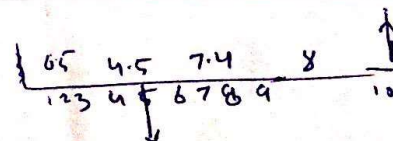 0.5 4.5 7.4 8
1 2 3 4 5 6 7 8 9 10